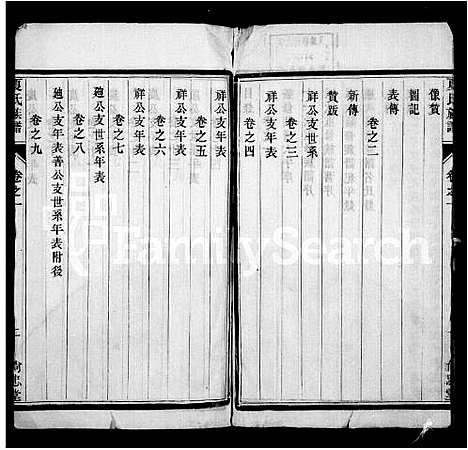 像贊
圖記
表傳
卷之二
新傳
贊跋
卷之三
祥公支世系
卷之四
祥公支年表
卷之五
祥公支年表
卷之六
祥公支年表
卷之七
廸公支世系年表
卷之八
廸公支年表善公支世系年表附後
卷之九
氏族譜
卷之一
FamilySearch